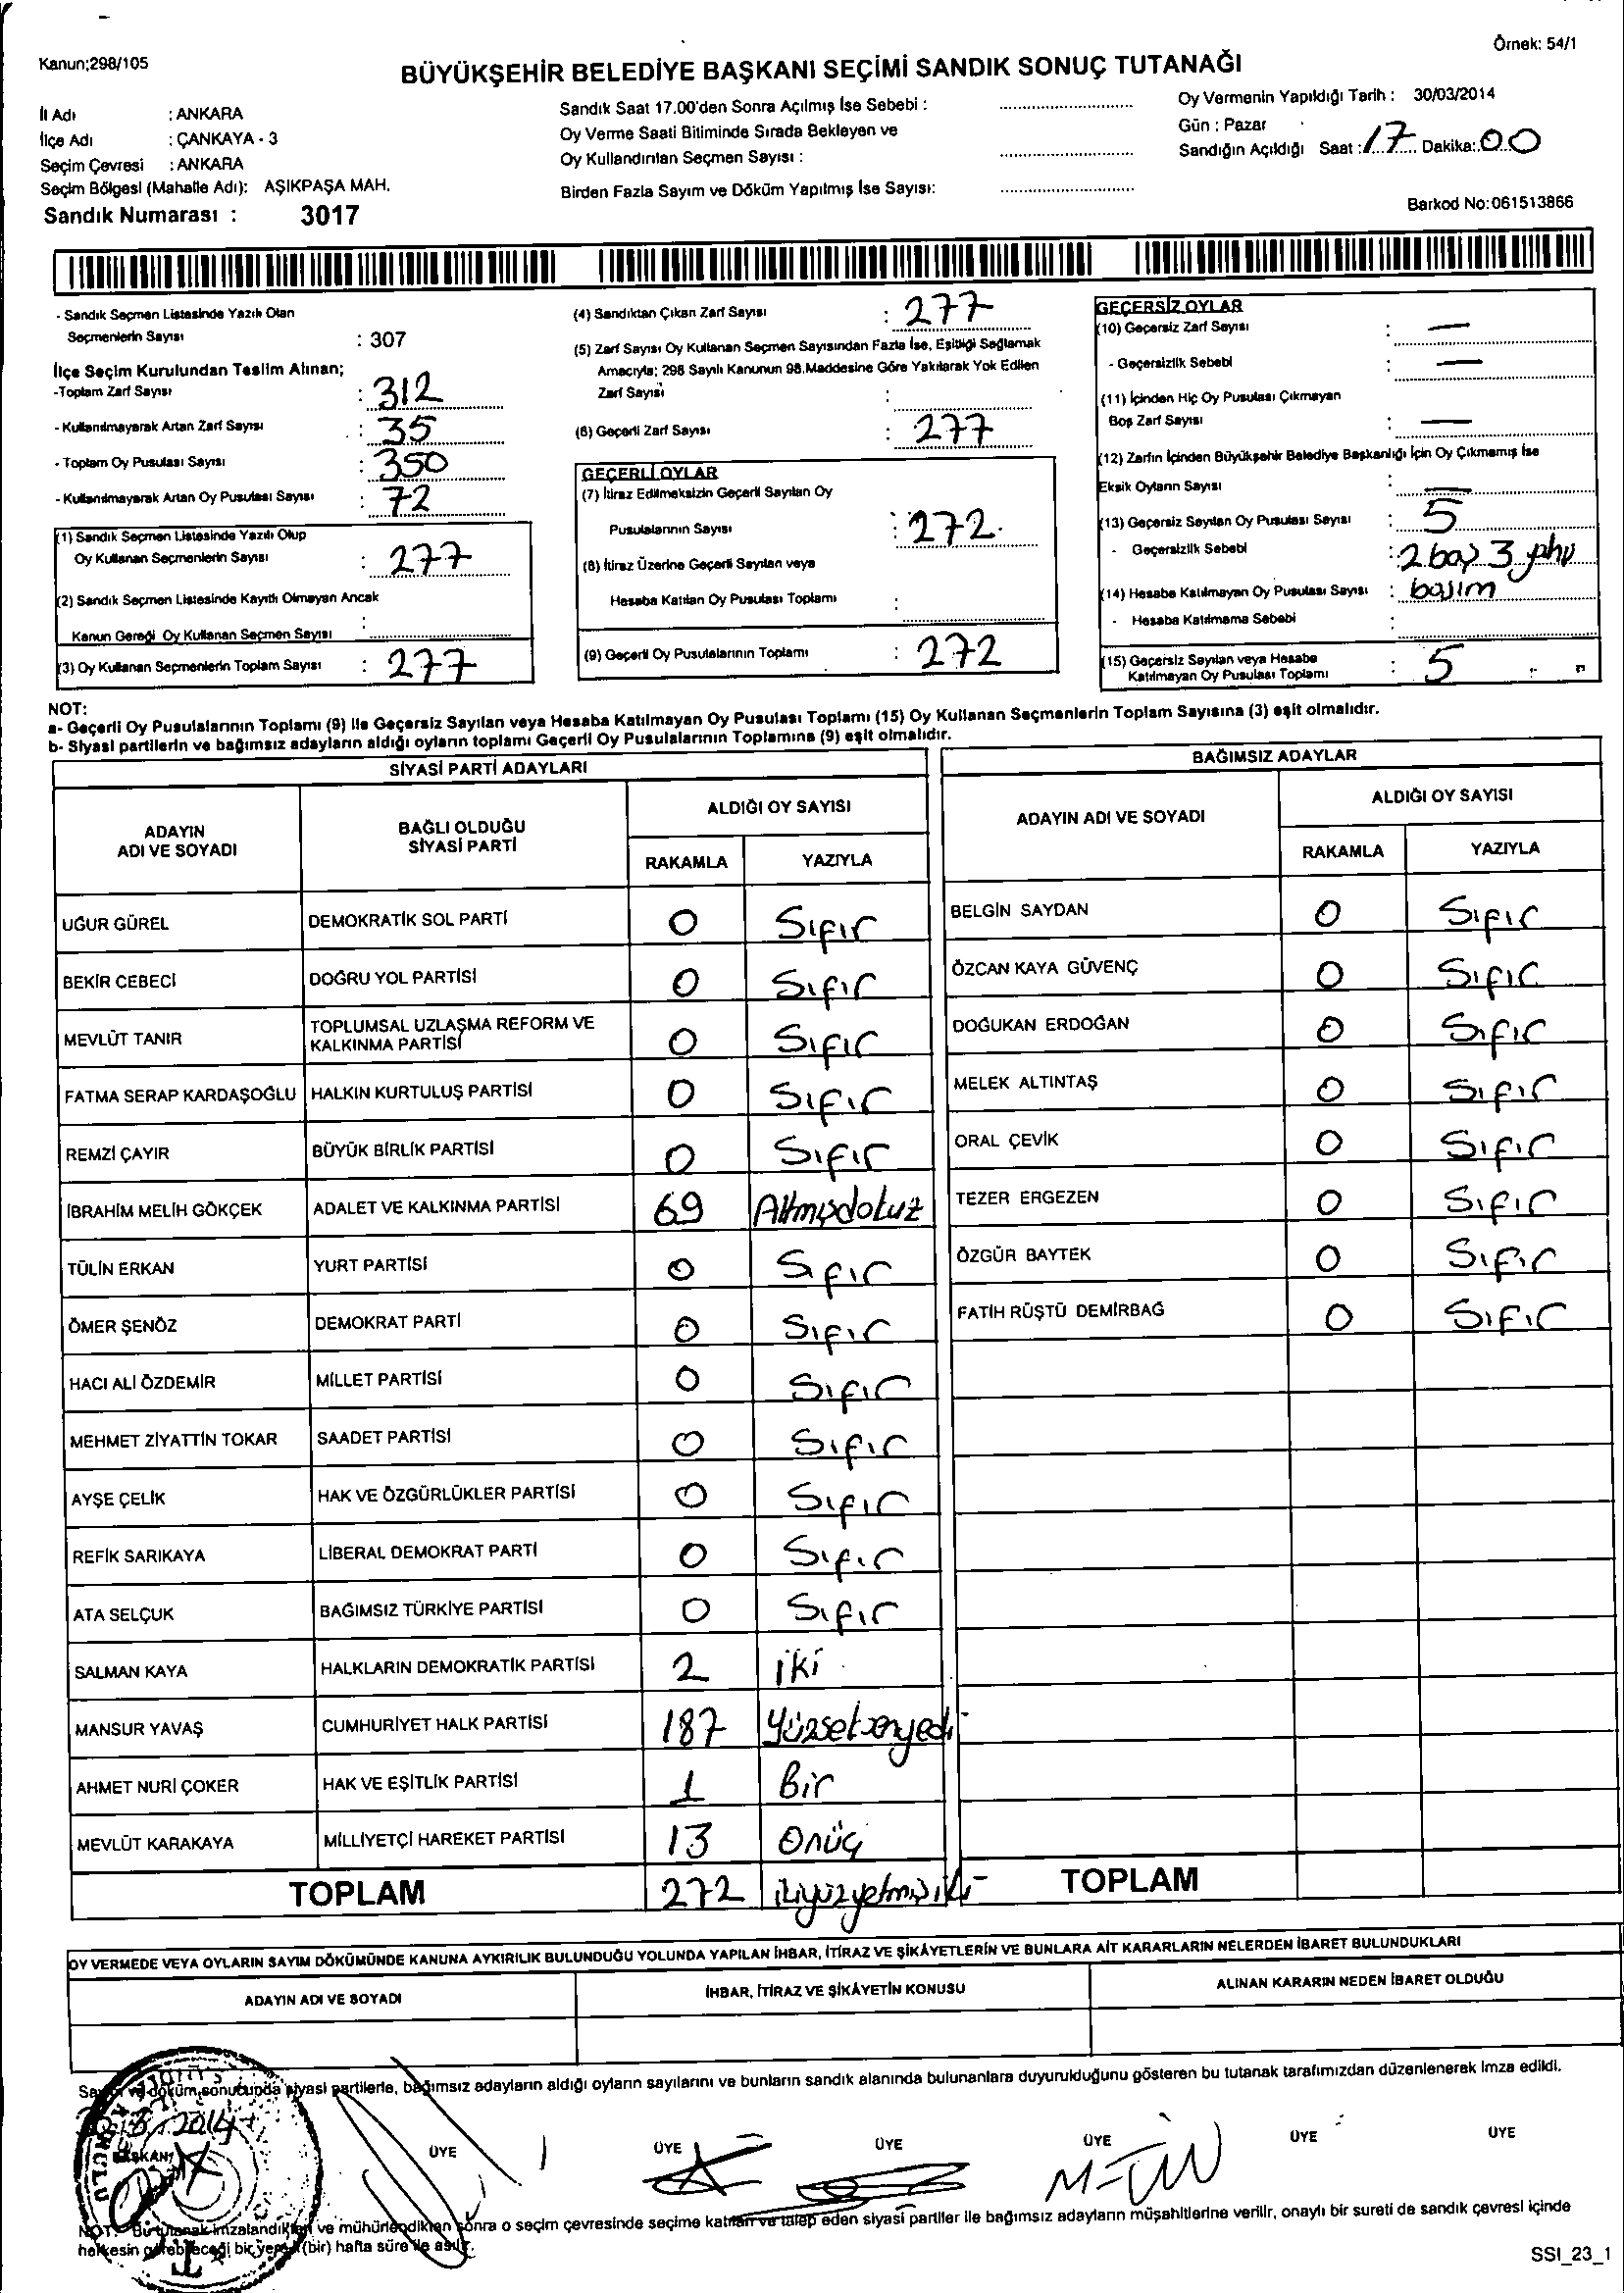 Kanun;298/105
Örnek: 54/1
BÜYÜKŞEHİR BELEDİYE BAŞKANI SEÇİMİ SANDIK SONUÇ TUTANAĞI
İl Adı : ANKARA
İlçe Adı : ÇANKAYA - 3
Seçim Çevresi : ANKARA
Seçim Bölgesi (Mahalle Adı): AŞIKPAŞA MAH.
Sandık Numarası : 3017
Sandık Saat 17.00'den Sonra Açılmış İse Sebebi :
Oy Verme Saati Bitiminde Sırada Bekleyen ve
Oy Kullandırılan Seçmen Sayısı :
Birden Fazla Sayım ve Döküm Yapılmış İse Sayısı:
Oy Vermenin Yapıldığı Tarih : 30/03/2014
Gün : Pazar
Sandığın Açıldığı Saat : 17 Dakika: 00
Barkod No:061513866
- Sandık Seçmen Listesinde Yazılı Olan
Seçmenlerin Sayısı : 307
İlçe Seçim Kurulundan Teslim Alınan;
-Toplam Zarf Sayısı : 312
- Kullanılmayarak Artan Zarf Sayısı : 35
- Toplam Oy Pusulası Sayısı : 350
- Kullanılmayarak Artan Oy Pusulası Sayısı : 72
(1) Sandık Seçmen Listesinde Yazılı Olup
Oy Kullanan Seçmenlerin Sayısı : 277
(2) Sandık Seçmen Listesinde Kayıtlı Olmayan Ancak
Kanun Gereği Oy Kullanan Seçmen Sayısı :
(3) Oy Kullanan Seçmenlerin Toplam Sayısı : 277
(4) Sandıktan Çıkan Zarf Sayısı : 277
(5) Zarf Sayısı Oy Kullanan Seçmen Sayısından Fazla İse, Eşitliği Sağlamak
Amacıyla; 298 Sayılı Kanunun 98.Maddesine Göre Yakılarak Yok Edilen
Zarf Sayısı :
(6) Geçerli Zarf Sayısı : 277
GEÇERLİ OYLAR
(7) İtiraz Edilmeksizin Geçerli Sayılan Oy
Pusulalarının Sayısı : 272.
(8) İtiraz Üzerine Geçerli Sayılan veya
Hesaba Katılan Oy Pusulası Toplamı :
(9) Geçerli Oy Pusulalarının Toplamı : 272
GEÇERSİZ OYLAR
(10) Geçersiz Zarf Sayısı : —
- Geçersizlik Sebebi : —
(11) İçinden Hiç Oy Pusulası Çıkmayan
Boş Zarf Sayısı : —
(12) Zarfın İçinden Büyükşehir Belediye Başkanlığı İçin Oy Çıkmamış İse
Eksik Oyların Sayısı : —
(13) Geçersiz Sayılan Oy Pusulası Sayısı : 5
- Geçersizlik Sebebi : 2 boş 3
(14) Hesaba Katılmayan Oy Pusulası Sayısı :
- Hesaba Katılmama Sebebi :
(15) Geçersiz Sayılan veya Hesaba
Katılmayan Oy Pusulası Toplamı : 5
NOT:
a- Geçerli Oy Pusulalarının Toplamı (9) ile Geçersiz Sayılan veya Hesaba Katılmayan Oy Pusulası Toplamı (15) Oy Kullanan Seçmenlerin Toplam Sayısına (3) eşit olmalıdır.
b- Siyasi partilerin ve bağımsız adayların aldığı oyların toplamı Geçerli Oy Pusulalarının Toplamına (9) eşit olmalıdır.
SİYASİ PARTİ ADAYLARI
ADAYIN ADI VE SOYADI BAĞLI OLDUĞU SİYASİ PARTİ ALDIĞI OY SAYISI
RAKAMLA YAZIYLA
UĞUR GÜREL DEMOKRATİK SOL PARTİ 0 Sıfır
BEKİR CEBECİ DOĞRU YOL PARTİSİ 0 Sıfır
MEVLÜT TANIR TOPLUMSAL UZLAŞMA REFORM VE KALKINMA PARTİSİ 0 Sıfır
FATMA SERAP KARDAŞOĞLU HALKIN KURTULUŞ PARTİSİ 0 Sıfır
REMZİ ÇAYIR BÜYÜK BİRLİK PARTİSİ 0 Sıfır
İBRAHİM MELİH GÖKÇEK ADALET VE KALKINMA PARTİSİ 69 Altmışdokuz
TÜLİN ERKAN YURT PARTİSİ 0 Sıfır
ÖMER ŞENÖZ DEMOKRAT PARTİ 0 Sıfır
HACI ALİ ÖZDEMİR MİLLET PARTİSİ 0 Sıfır
MEHMET ZİYATTİN TOKAR SAADET PARTİSİ 0 Sıfır
AYŞE ÇELİK HAK VE ÖZGÜRLÜKLER PARTİSİ 0 Sıfır
REFİK SARIKAYA LİBERAL DEMOKRAT PARTİ 0 Sıfır
ATA SELÇUK BAĞIMSIZ TÜRKİYE PARTİSİ 0 Sıfır
SALMAN KAYA HALKLARIN DEMOKRATİK PARTİSİ 2 iki
MANSUR YAVAŞ CUMHURİYET HALK PARTİSİ 187 Yüzseksenyedi
AHMET NURİ ÇOKER HAK VE EŞİTLİK PARTİSİ 1 Bir
MEVLÜT KARAKAYA MİLLİYETÇİ HAREKET PARTİSİ 13 Onüç
TOPLAM 272 ikiyüzyetmişiki
BAĞIMSIZ ADAYLAR
ADAYIN ADI VE SOYADI ALDIĞI OY SAYISI
RAKAMLA YAZIYLA
BELGİN SAYDAN 0 Sıfır
ÖZCAN KAYA GÜVENÇ 0 Sıfır
DOĞUKAN ERDOĞAN 0 Sıfır
MELEK ALTINTAŞ 0 Sıfır
ORAL ÇEVİK 0 Sıfır
TEZER ERGEZEN 0 Sıfır
ÖZGÜR BAYTEK 0 Sıfır
FATİH RÜŞTÜ DEMİRBAĞ 0 Sıfır
TOPLAM
OY VERMEDE VEYA OYLARIN SAYIM DÖKÜMÜNDE KANUNA AYKIRILIK BULUNDUĞU YOLUNDA YAPILAN İHBAR, İTİRAZ VE ŞİKÂYETLERİN VE BUNLARA AİT KARARLARIN NELERDEN İBARET BULUNDUKLARI
ADAYIN ADI VE SOYADI İHBAR, İTİRAZ VE ŞİKÂYETİN KONUSU ALINAN KARARIN NEDEN İBARET OLDUĞU
Sayım ve döküm sonucunda siyasi partilerle, bağımsız adayların aldığı oyların sayılarını ve bunların sandık alanında bulunanlara duyurulduğunu gösteren bu tutanak tarafımızdan düzenlenerek imza edildi.
BAŞKAN ÜYE ÜYE ÜYE ÜYE ÜYE ÜYE
NOT: Bu tutanak imzalandıktan ve mühürlendikten sonra o seçim çevresinde seçime katılan ve talep eden siyasi partiler ile bağımsız adayların müşahitlerine verilir, onaylı bir sureti de sandık çevresi içinde
herkesin görebileceği bir yere 1 (bir) hafta süre ile asılır.
SSI_23_1